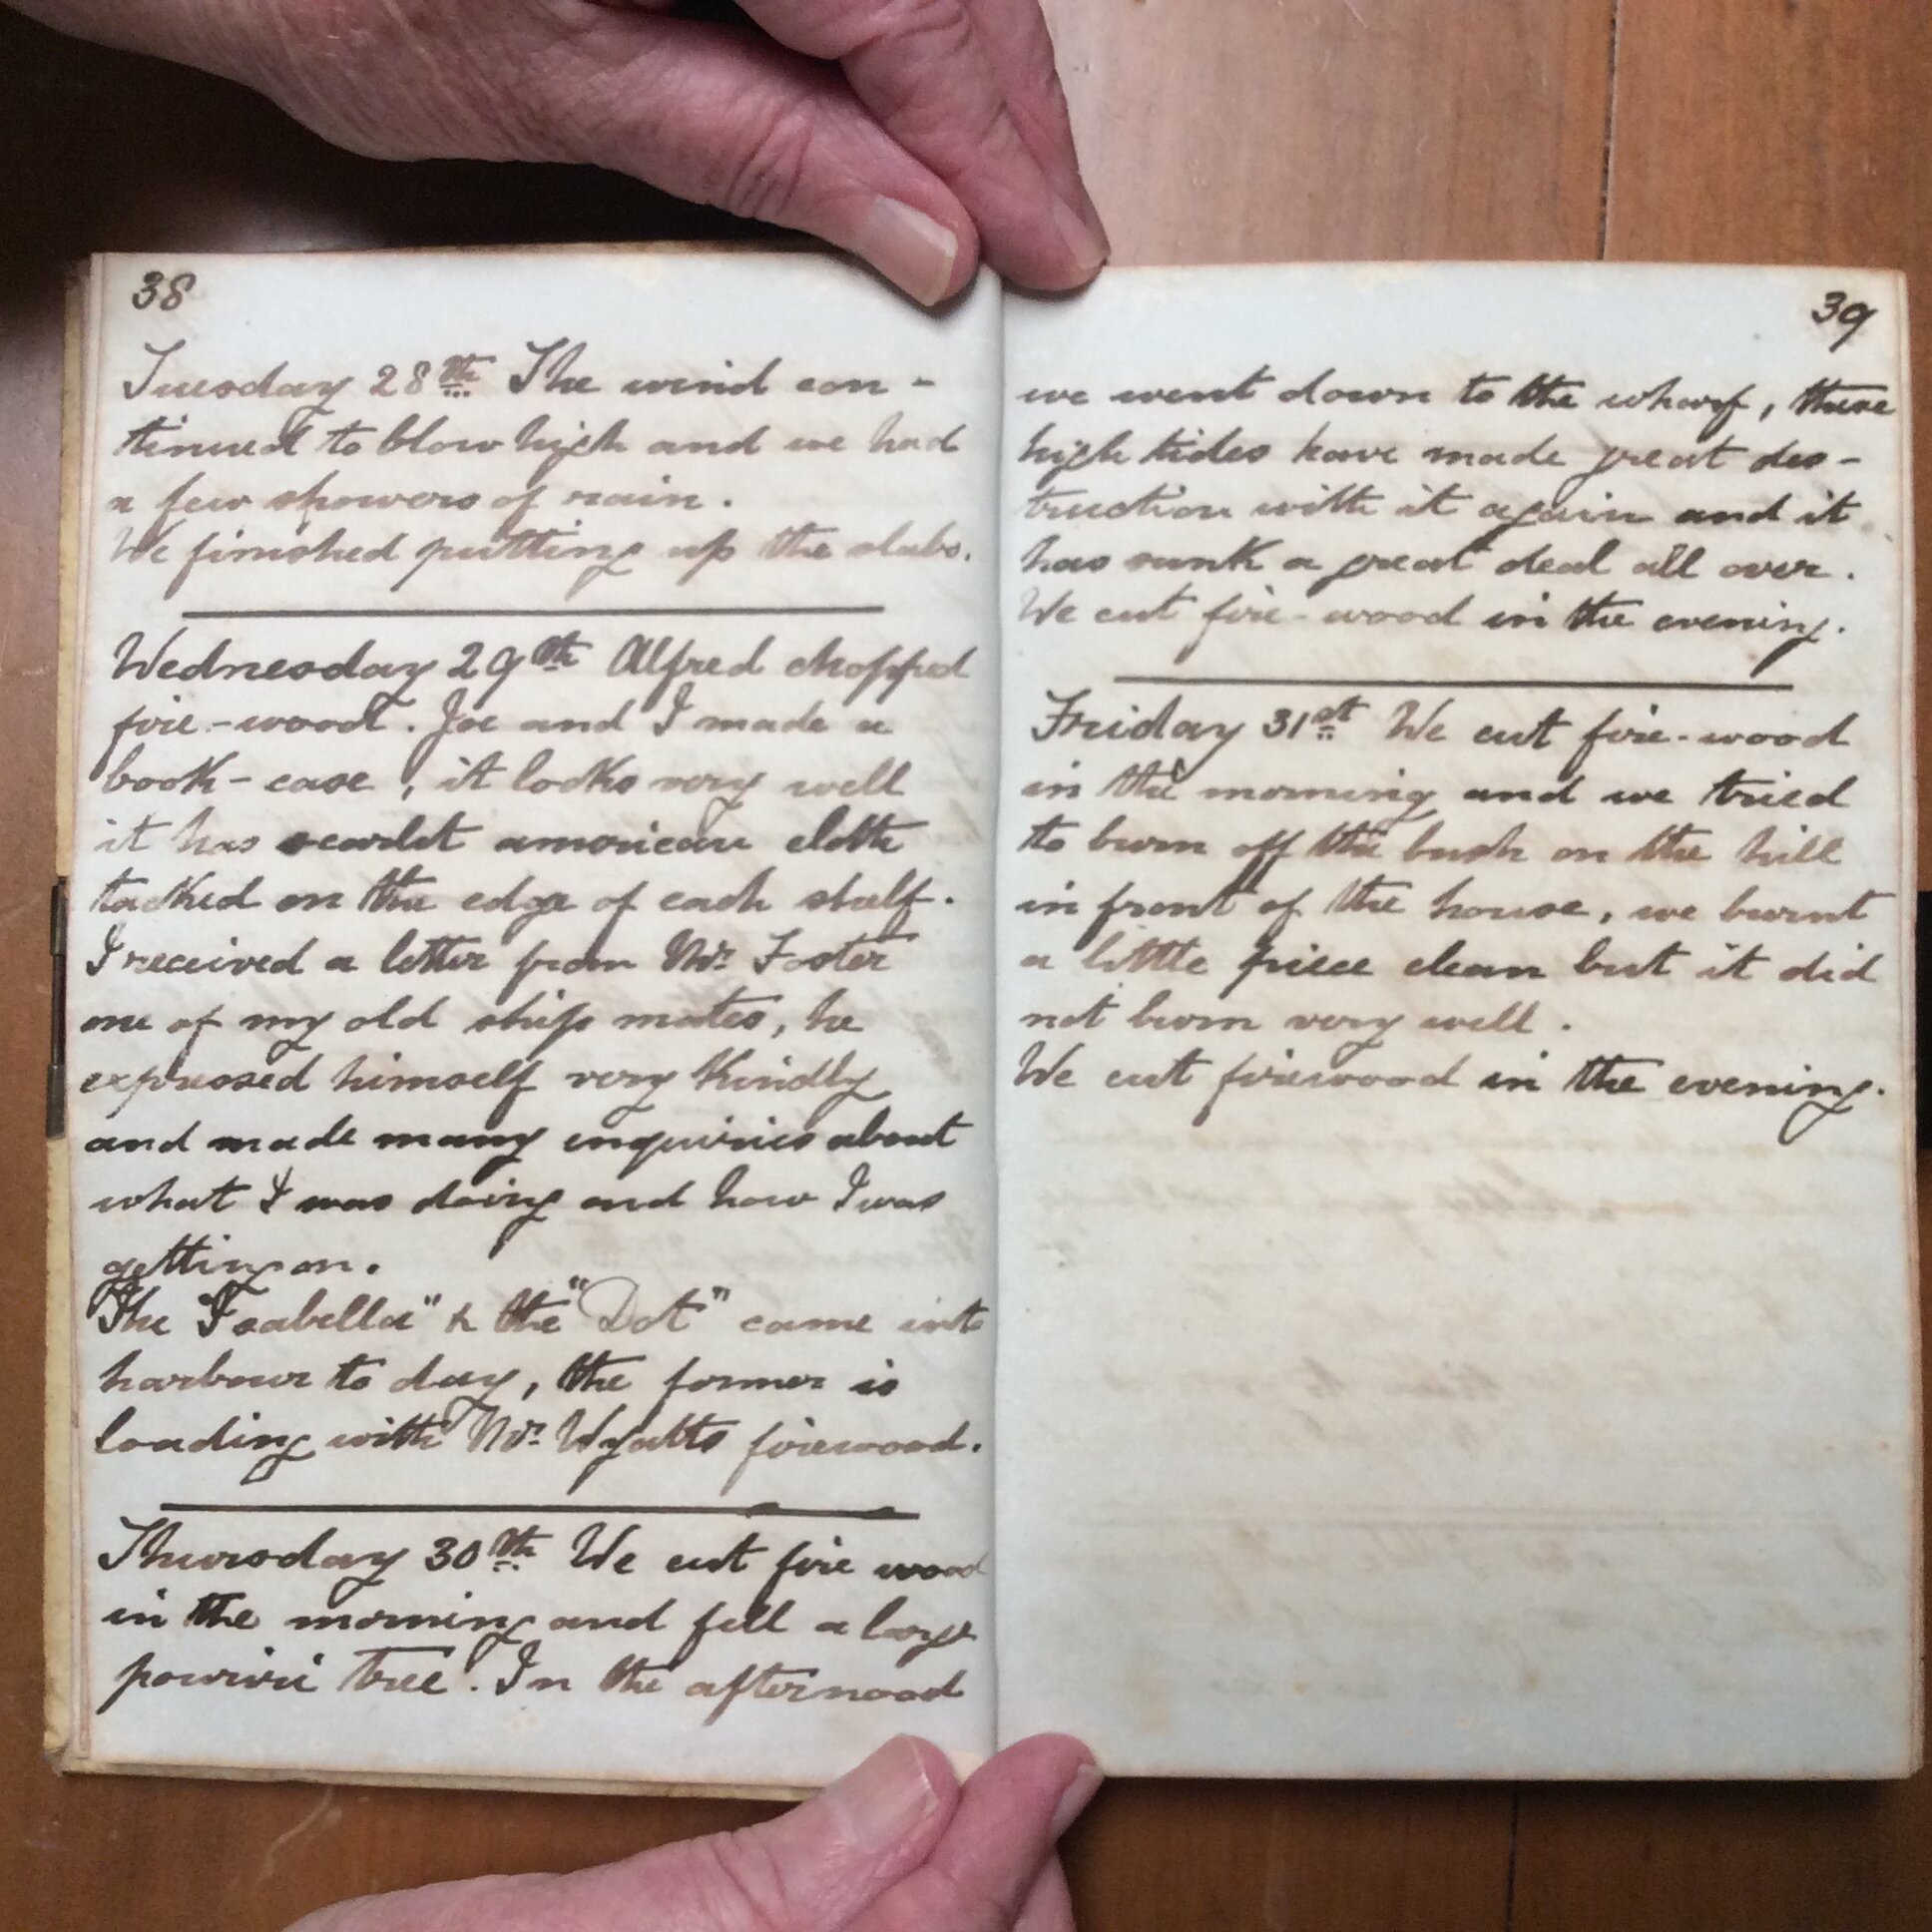 38
Tuesday 28th The wind con-
tinued to blow high and we had
a few showers of rain.
We finished putting up the slabs.
Wednesday 29th Alfred chopped
fire-wood. Joe and I made a
book-case, it looks very well
it has scarlet american cloth
tacked on the edge of each shelf.
I received a letter from Mr. Foster
one of my old ship mates, he
expressed himself very kindly
and made many enquiries about
what I was doing and how I was
getting on.
The "Isabella" & the "Dot" came into
harbour to day, the former is
loading with Mr. Wyatts firewood.
Thursday 30th We cut fire wood
in the morning and fell a large
powriri tree. In the afternood
39
we went down to the wharf, these
high tides have made great des-
truction with it again and it
has sunk a great deal all over.
We cut fire-wood in the evening.
Friday 31st We cut fire-wood
in the morning and we tried
to burn off the bush on the hill
in front of the house, we burnt
a little piece clean but it did
not burn very well.
We cut firewood in the evening.